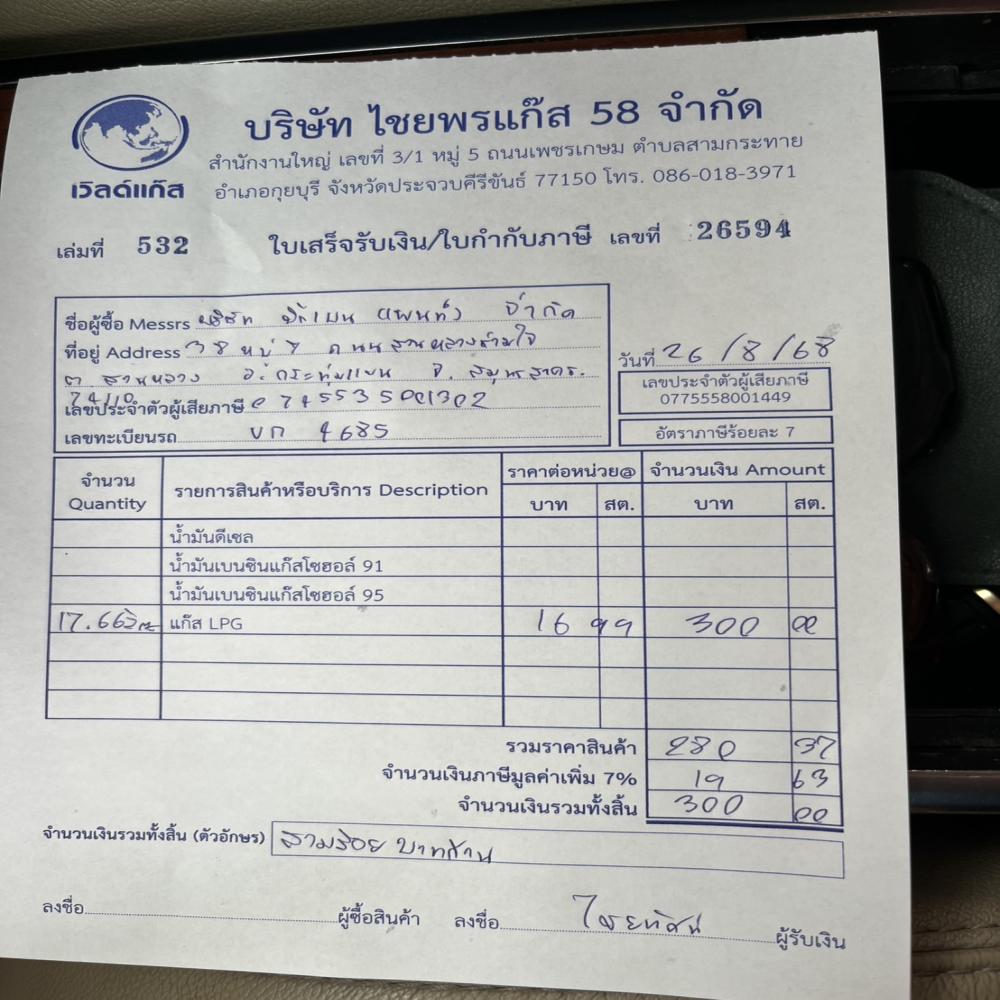 บริษัท ไชยพรแก๊ส 58 จำกัด
สำนักงานใหญ่ เลขที่ 3/1 หมู่ 5 ถนนเพชรเกษม ตำบลสามกระทาย
เวิลด์แก๊ส อำเภอกุยบุรี จังหวัดประจวบคีรีขันธ์ 77150 โทร. 086-018-3971
เล่มที่ 532 ใบเสร็จรับเงิน/ใบกำกับภาษี เลขที่ 26594
ชื่อผู้ซื้อ Messrs บริษัท จำกัด
ที่อยู่ Address 38 หมู่ 7 ถนน
วันที่ 26/8/68
ต. สวนหลวง อ.กระทุ่มแบน จ. สมุทรสาคร.
74110
เลขประจำตัวผู้เสียภาษี
เลขประจำตัวผู้เสียภาษี
0775558001449
เลขทะเบียนรถ 4685
อัตราภาษีร้อยละ 7
จำนวน Quantity รายการสินค้าหรือบริการ Description ราคาต่อหน่วย@ จำนวนเงิน Amount
บาท สต. บาท สต.
น้ำมันดีเซล
น้ำมันเบนซินแก๊สโซฮอล์ 91
น้ำมันเบนซินแก๊สโซฮอล์ 95
แก๊ส LPG 16 99 300 00
รวมราคาสินค้า 280 37
จำนวนเงินภาษีมูลค่าเพิ่ม 7% 19 63
จำนวนเงินรวมทั้งสิ้น 300 00
จำนวนเงินรวมทั้งสิ้น (ตัวอักษร) สามร้อยบาทถ้วน
ลงชื่อ ผู้ซื้อสินค้า ลงชื่อ ผู้รับเงิน